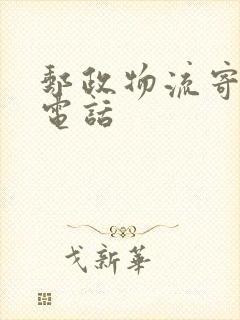 郵政物流寄
電話
戈新華